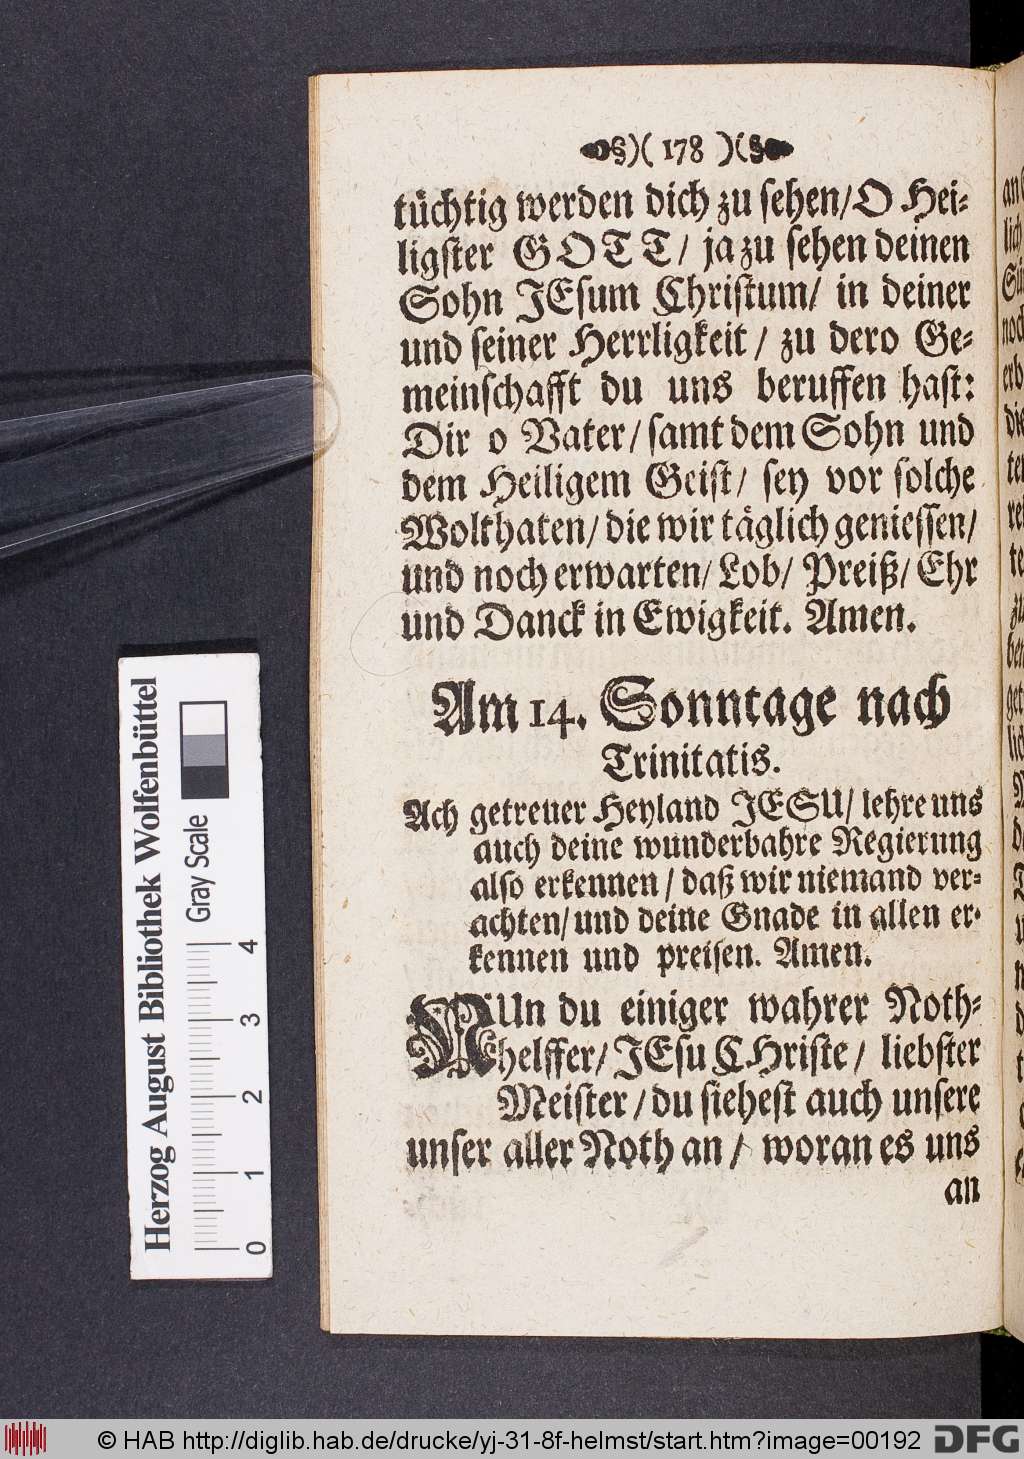 )( 178 )(
tüchtig werden dich zu ſehen/ O Hei-
ligſter GOTT/ ja zu ſehen deinen
Sohn JEſum Chriſtum/ in deiner
und ſeiner Herrligkeit/ zu dero Ge-
meinſchafft du uns beruffen haſt:
Dir o Vater/ ſamt dem Sohn und
dem Heiligem Geiſt/ ſey vor ſolche
Wolthaten/ die wir täglich genieſſen/
und noch erwarten/ Lob/ Preiß/ Ehr
und Danck in Ewigkeit. Amen.
Am 14. Sonntage nach
Trinitatis.
Ach getreuer Heyland JESU/ lehre uns
auch deine wunderbahre Regierung
alſo erkennen/ daß wir niemand ver-
achten/ und deine Gnade in allen er-
kennen und preiſen. Amen.
NUn du einiger wahrer Noth-
helffer/ JEſu CHriſte/ liebſter
Meiſter/ du ſieheſt auch unſere
unſer aller Noth an/ woran es uns
an
Herzog August Bibliothek Wolfenbüttel
Gray Scale
0 1 2 3 4
© HAB http://diglib.hab.de/drucke/yj-31-8f-helmst/start.htm?image=00192
DFG